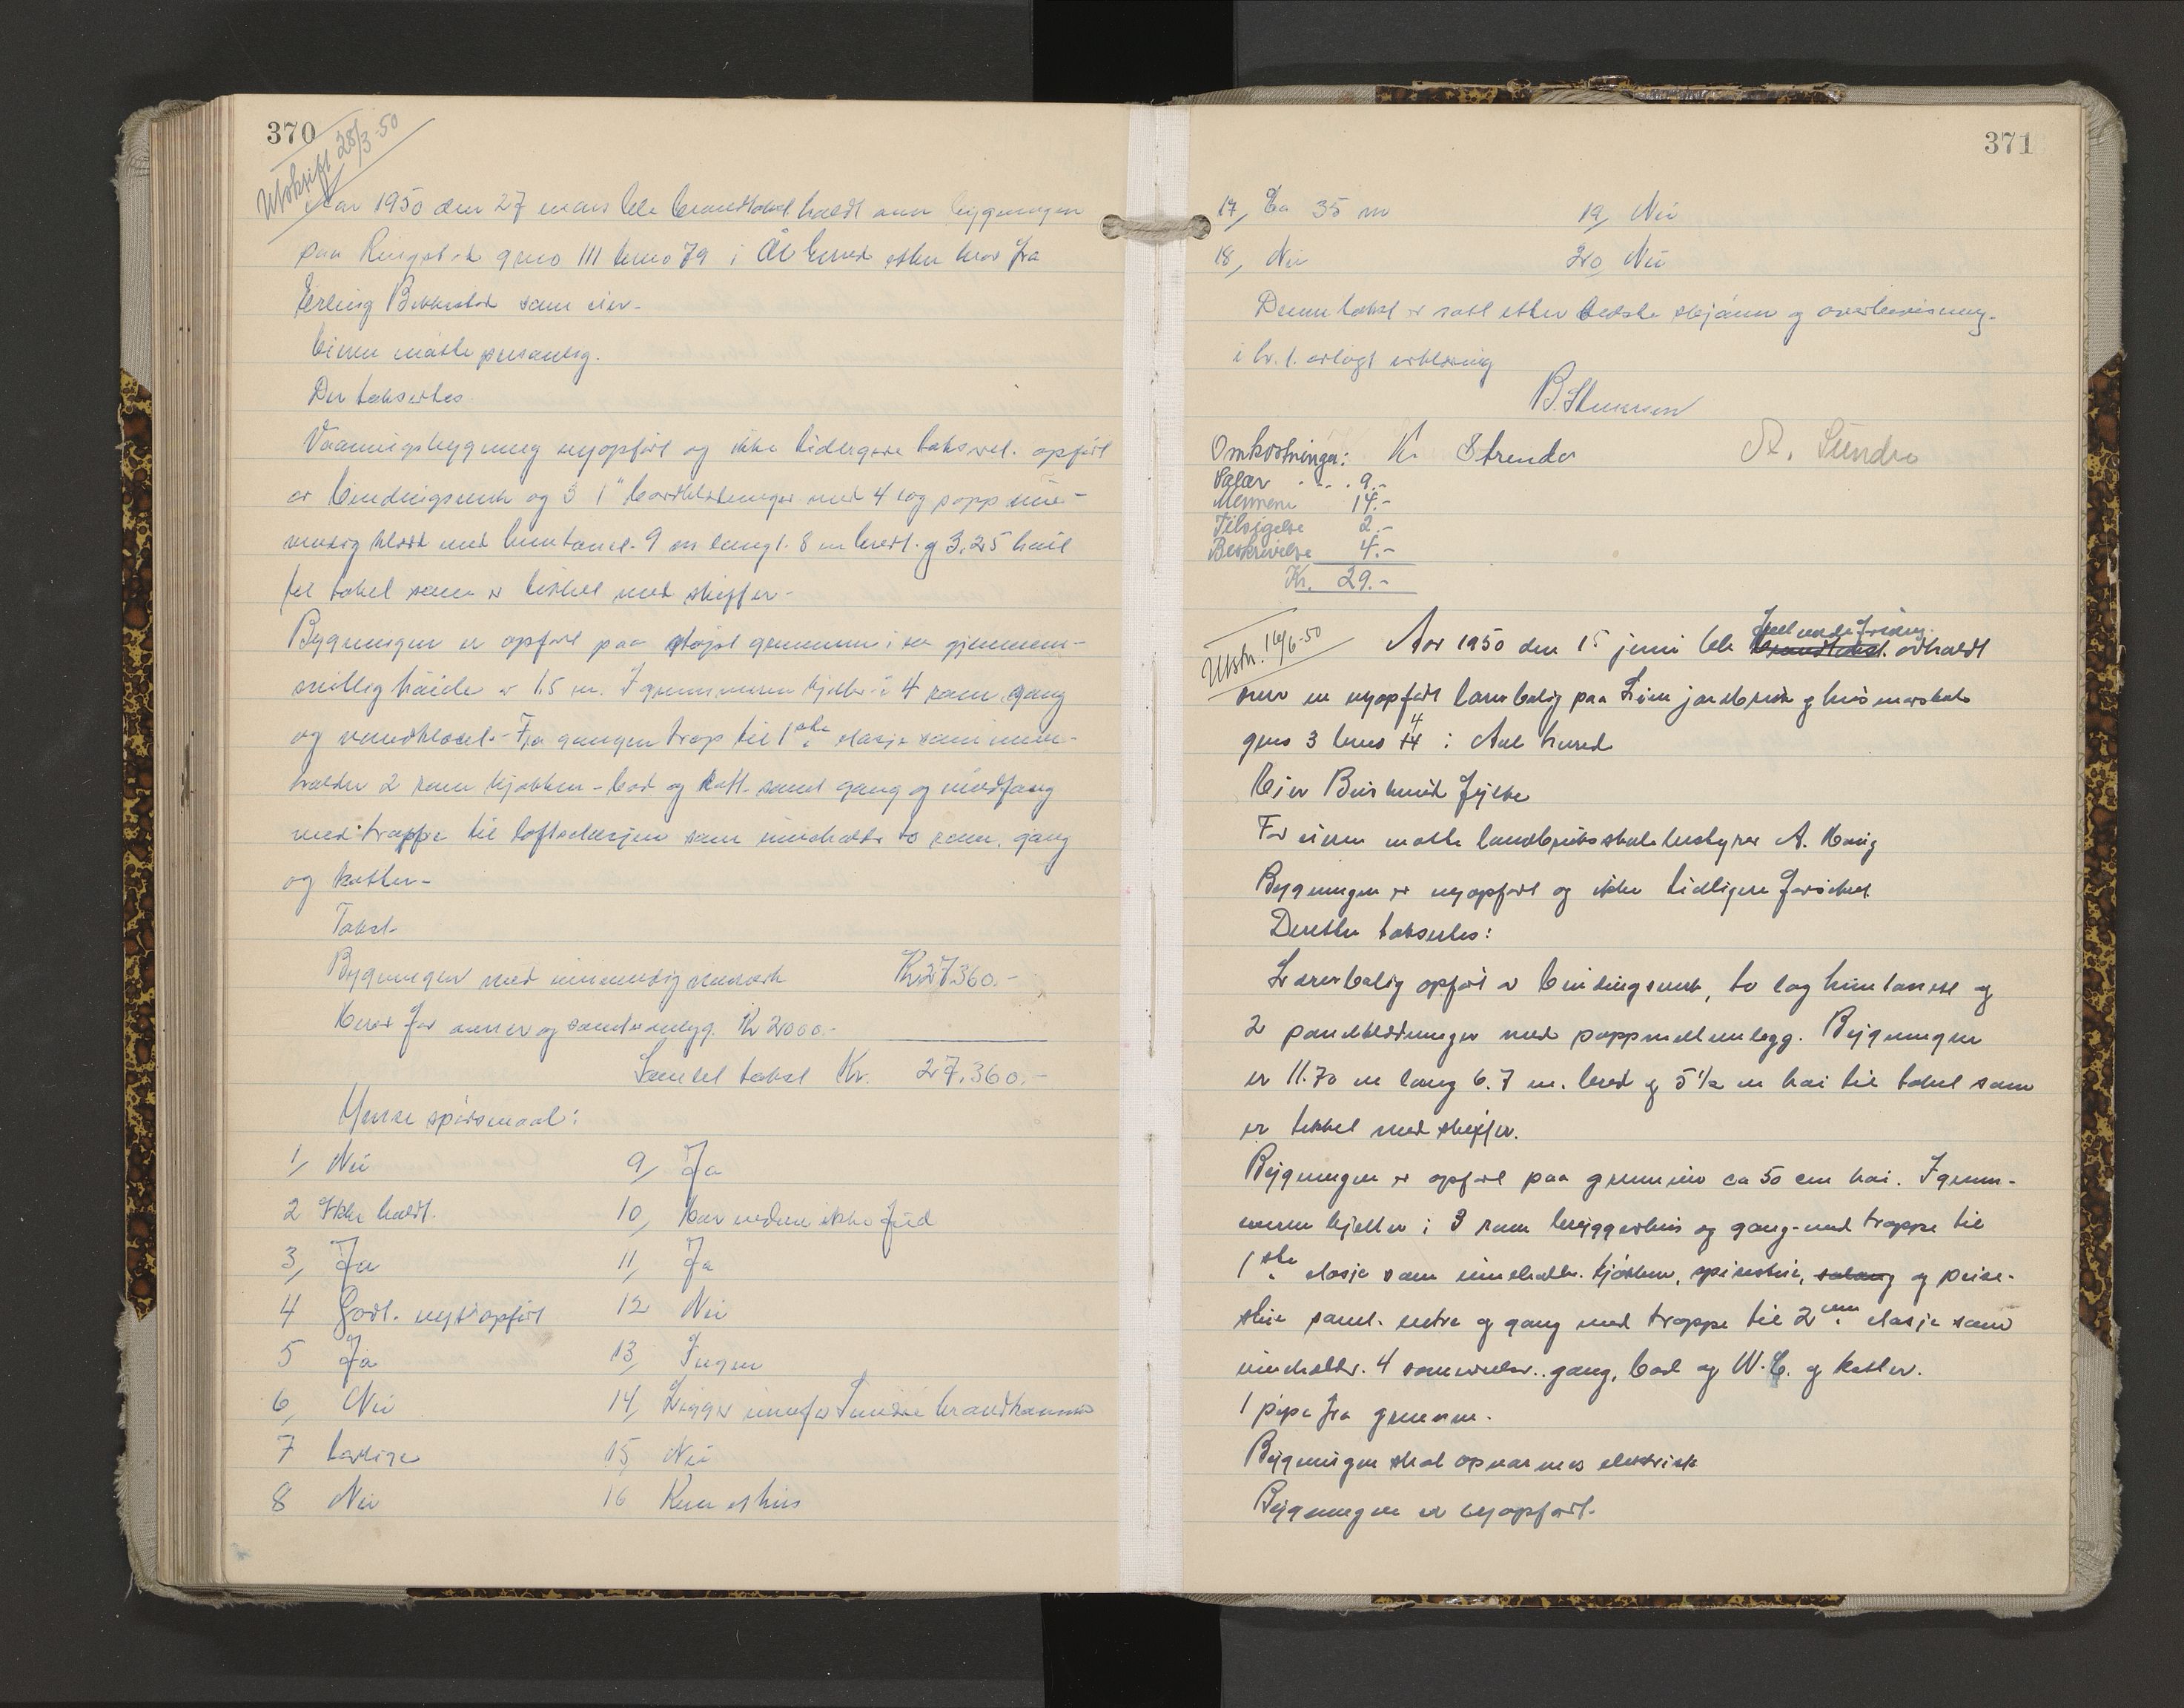 370
Utskrift 28/3-50
Aar 1950 den 27 mars ble brandtakst holdt over bygningen
paa gno 111 bno 79 i Ål herred etter krav fra
Erling som eier.
Eieren møtte personlig.
Der takseres
Vaaningsbygning nyopført og ikke tidligere taksert. opført
av bindingsverk og 3 1" bordklædninger med 4 lag papp inn-
vendig klædd med huntonit. 9 m langt. 8 m bredt. og 3,25 høit
til taket som er tekket med skiffer-
Bygningen er opført paa støpt grunnmur i en gjennem-
snittlig høide av 1.5 m. I grunnmuren kjeller i 4 rom, gang
og vandklosett- Fra gangen trap til 1ste etasje som inne-
holder 2 rom kjøkken - bad og kott. samt gang og vindfang
med trappe til loftsetasjen som inneholder to rom, gang
og kotter-
Takst-
Bygningen med innvendig Kr 27360.-
Herav for ovner og sanitæranlegg. Kr 2000.-
Samlet takst Kr. 27.360.-
Yerre spørsmaal:
1, Nei 9, Ja
2 Ikke holdt. 10, Har vedere ikke ført
3, Ja 11, Ja
4 Godt. nyopført 12 Nei
5 Ja 13, Ingen
6, Nei 14, Ligger innefor Sundre brandkomune
7 15, Nei
8 Nei 16 Kun et hus
371
17, Ca 35 m 19, Nei
18, Nei 20, Nei
Denne takst er satt etter bedste skjønn og overbevisning.
i h. t. avlagt erklæring
B. Stenersen
Omkostninger: K. Strender A. Sundre
Salær . . . . 9.-
Mennene 14.-
Tilsigelse 2.-
Beskrivelse 4.-
Kr. 29.-
Utskr. 16/6-50
Aar 1950 den 15 juni ble brandtakst. avholdt
over en nyopført lærerbolig paa Lien jordbruk og husmorskole
gno 3 bno 4 i Aal herred
Eier Buskerud fylke
For eieren møtte landbruksskolebestyrer A. Haug
Bygningen er nyopført og ikke tidligere forsikret.
Deretter takseres:
Lærerbolig opført av bindingsverk, to lag huntonitt og
2 panelklædninger med pappmellemlegg. Bygningen
er 11.70 m lang 6.7 m. bred og 5 1/2 m høi til taket som
er tekket med skiffer.
Bygningen er opført paa grunnmur ca 50 cm høi. I grunn-
muren kjeller i 3 rom bryggerhus og gang - med trappe til
1ste etasje som inneholder. kjøkken, spisestue, salong og peise-
stue samt. entre og gang med trappe til 2en etasje som
inneholder. 4 soverom.. gang, bad og W.C. og kotter.
1 pipe fra grunnen.
Bygningen skal opvarmes elektrisk
Bygningen er nyopført.